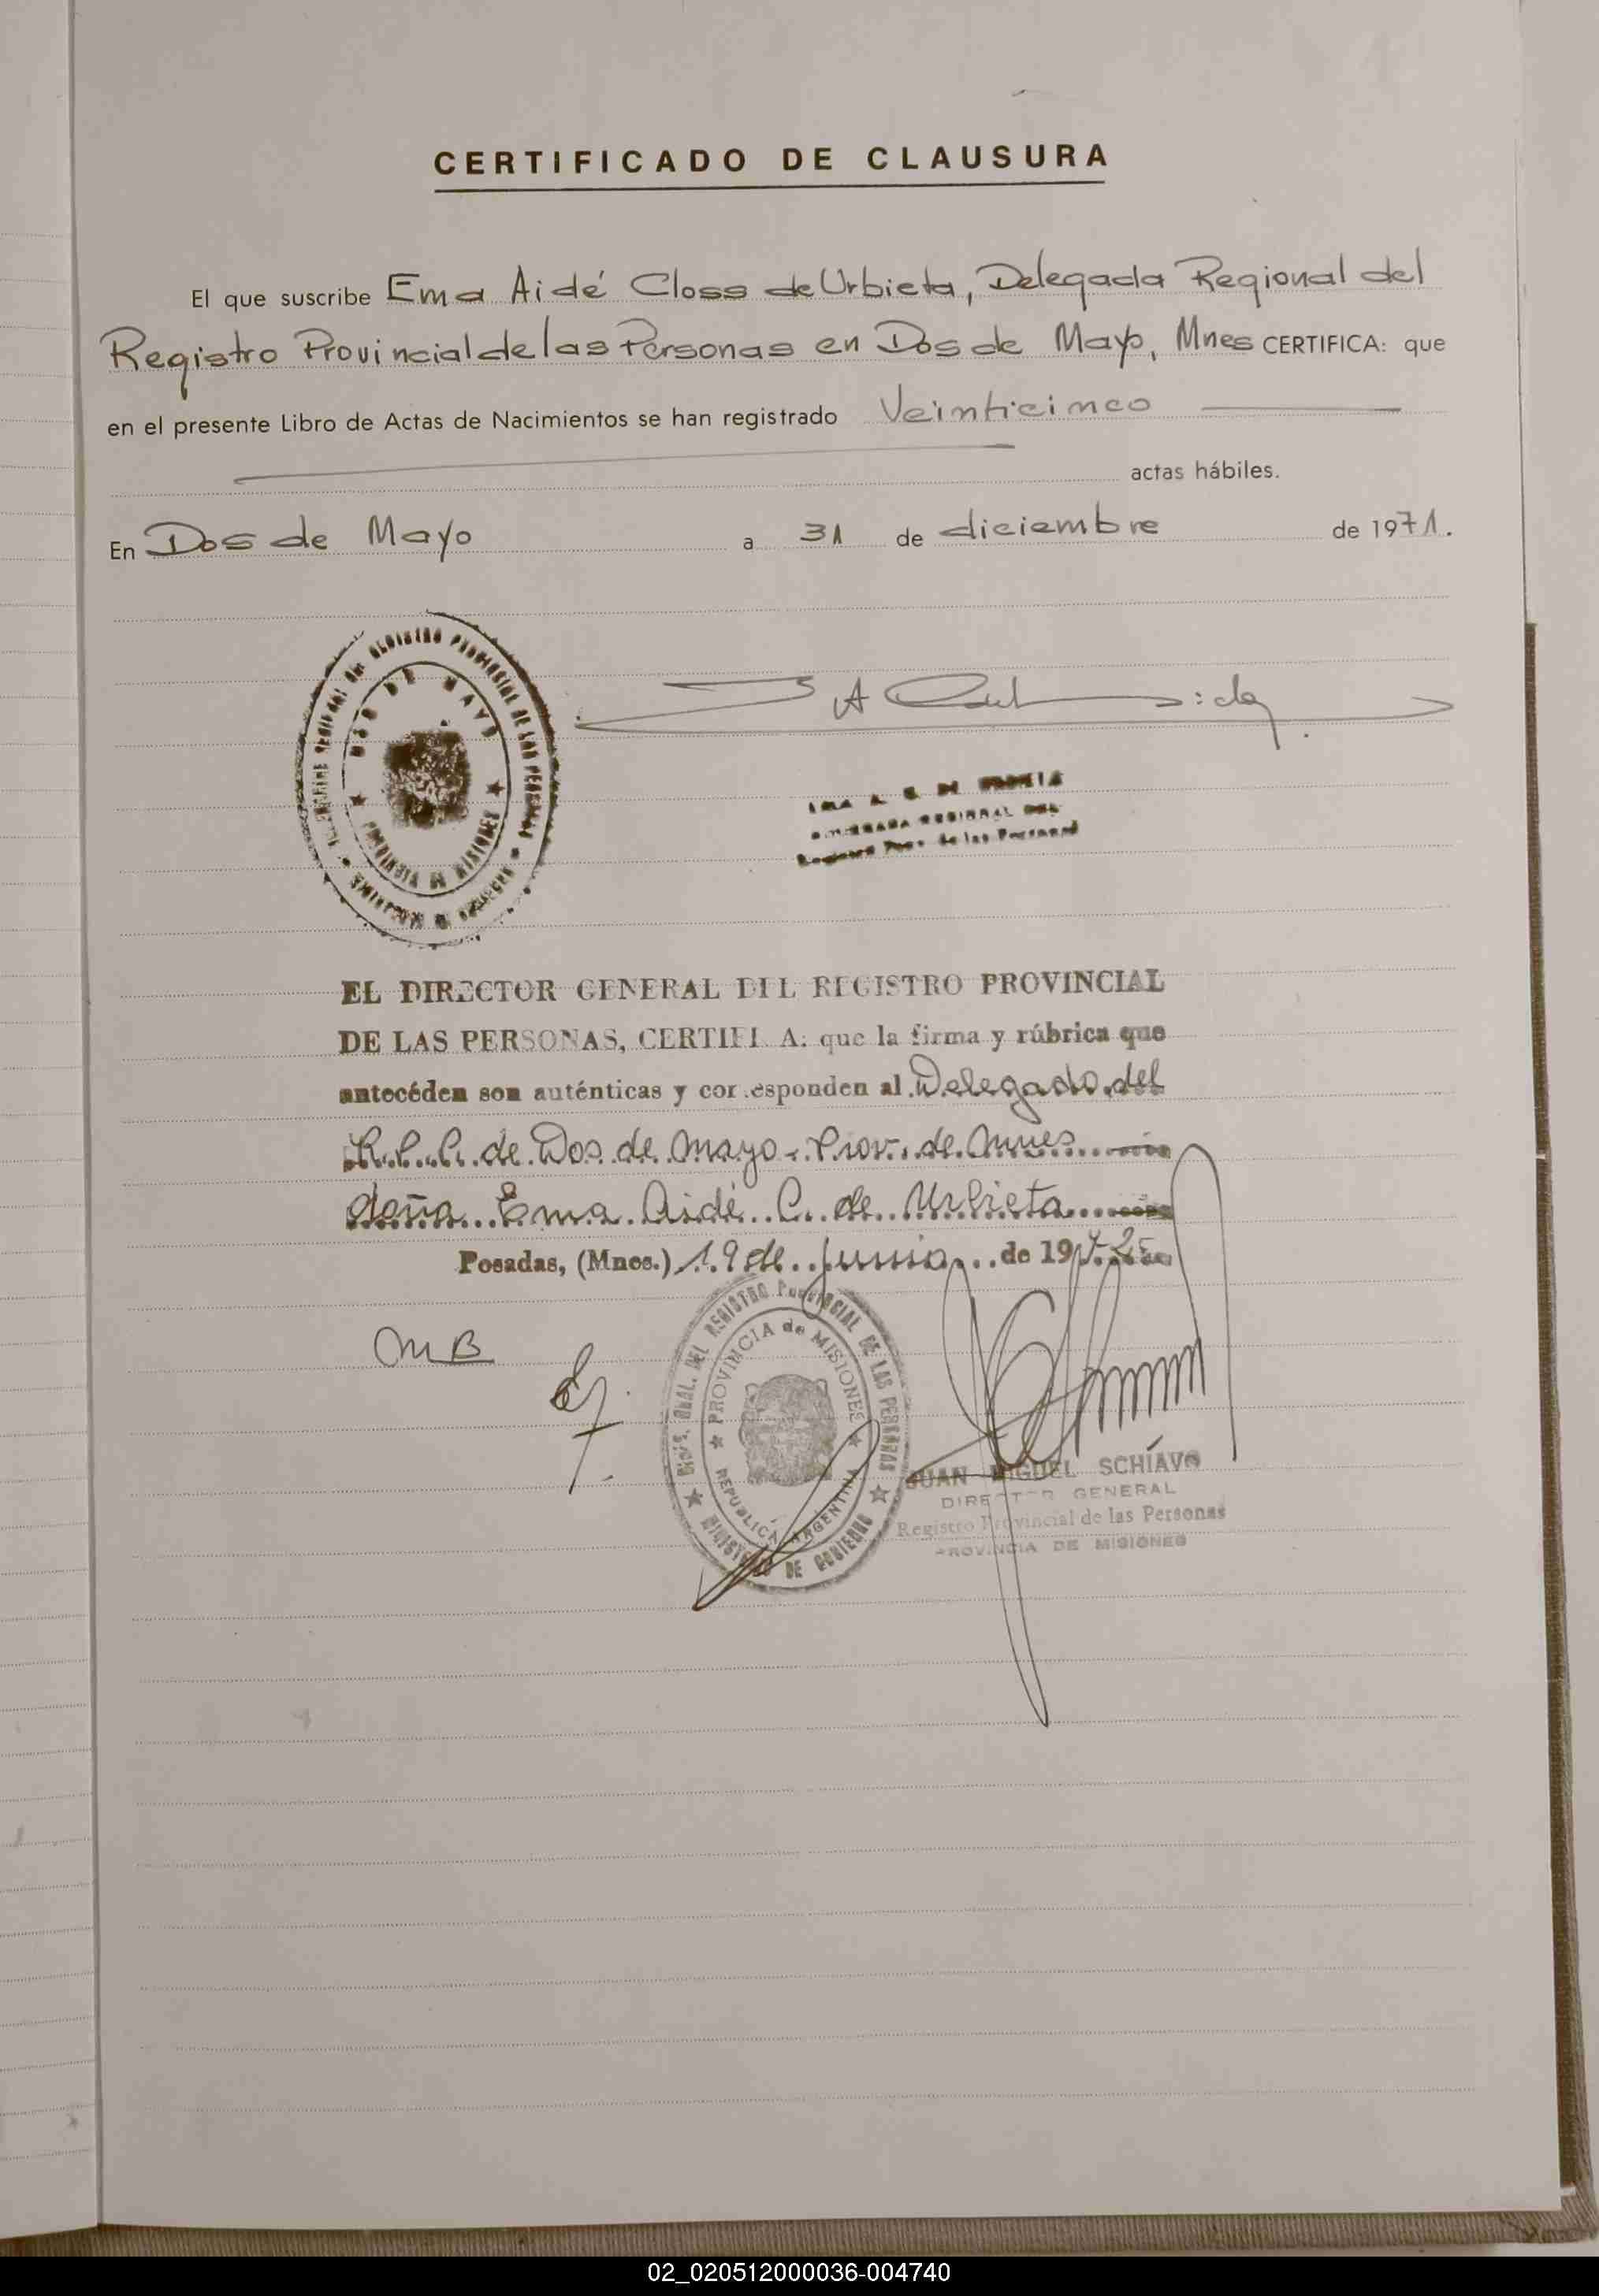 CERTIFICADO DE CLAUSURA
El que suscribe Ema Aidé Closs de Urbieta, Delegada Regional del
Registro Provincial de las Personas en Dos de Mayo, Mnes CERTIFICA: que
en el presente Libro de Actas de Nacimientos se han registrado Veinticinco
actas hábiles.
En Dos de Mayo a 31 de diciembre de 1971.
REGISTRO PROVINCIAL DE LAS PERSONAS
DOS DE MAYO
PROVINCIA DE MISIONES
EL DIRECTOR GENERAL DEL REGISTRO PROVINCIAL
DE LAS PERSONAS, CERTIFI A: que la firma y rúbrica que
antecéden son auténticas y cor esponden al Delegado del
R.P.P. de Dos de Mayo - Prov. de Mnes
doña Ema Aidé C. de Urbieta
Posadas, (Mnes.) 19 de Junio de 1972
MB
REGISTRO PROVINCIAL DE LAS PERSONAS
PROVINCIA de MISIONES
REPUBLICA ARGENTINA
MINISTERIO DE GOBIERNO
JUAN MIGUEL SCHIAVO
DIRECTOR GENERAL
Registro Provincial de las Personas
PROVINCIA DE MISIONES
02_020512000036-004740